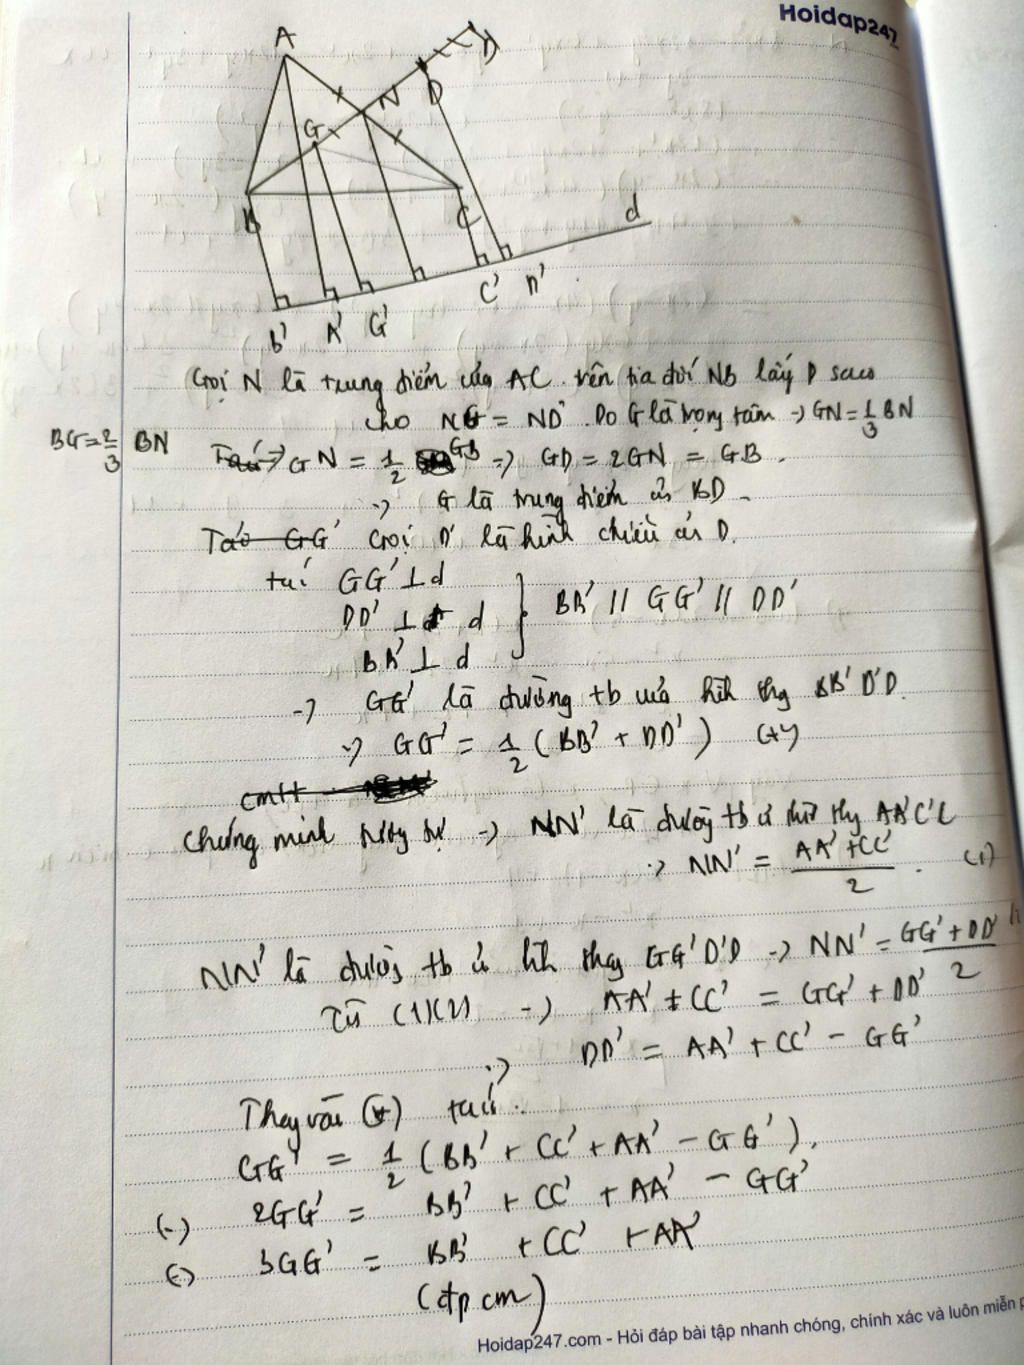 Hoidap247
A
D
N
D
G
B
C
d
C' D'
B' A' G'
Gọi N là trung điểm của AC. trên tia đối NB lấy D sao
cho NG = ND. Do G là trọng tâm → GN = 1/3 BN
BG = 2/3 BN
GN = 1/2 GB → GD = 2GN = GB.
→ G là trung điểm của BD.
Gọi D' là hình chiếu của D.
ta có GG' ⊥ d
DD' ⊥ d
BB' ⊥ d
BB' // GG' // DD'
→ GG' là đường tb của hình thg BB'D'D.
→ GG' = 1/2 (BB' + DD') (*)
Chứng minh tương tự → NN' là đường tb của hình thg AA'C'C
→ NN' = (AA' + CC')/2. (1)
NN' là đường tb của hình thang GG'D'D → NN' = (GG' + DD')/2
Từ (1)(2) → AA' + CC' = GG' + DD'
→ DD' = AA' + CC' - GG'
Thay vào (*) ta có:
GG' = 1/2 (BB' + CC' + AA' - GG').
(-) 2GG' = BB' + CC' + AA' - GG'
(-) 3GG' = BB' + CC' + AA'
(đpcm)
Hoidap247.com - Hỏi đáp bài tập nhanh chóng, chính xác và luôn miễn